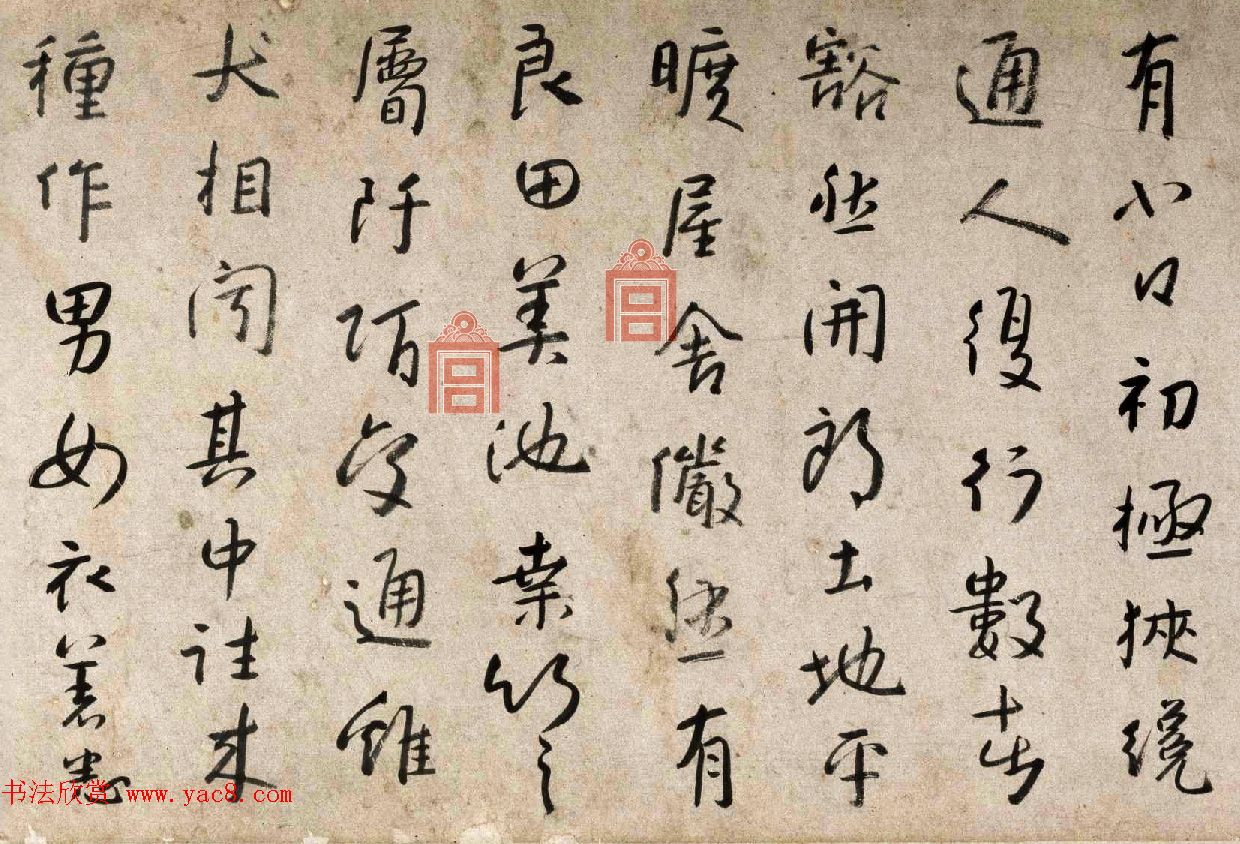 有小口初極狹纔
通人復行數十步
豁然開朗土地平
曠屋舍儼然有
良田美池桑竹之
層阡陌交通雞
犬相聞其中往来
種作男女衣著悉
书法欣赏 www.yac8.com